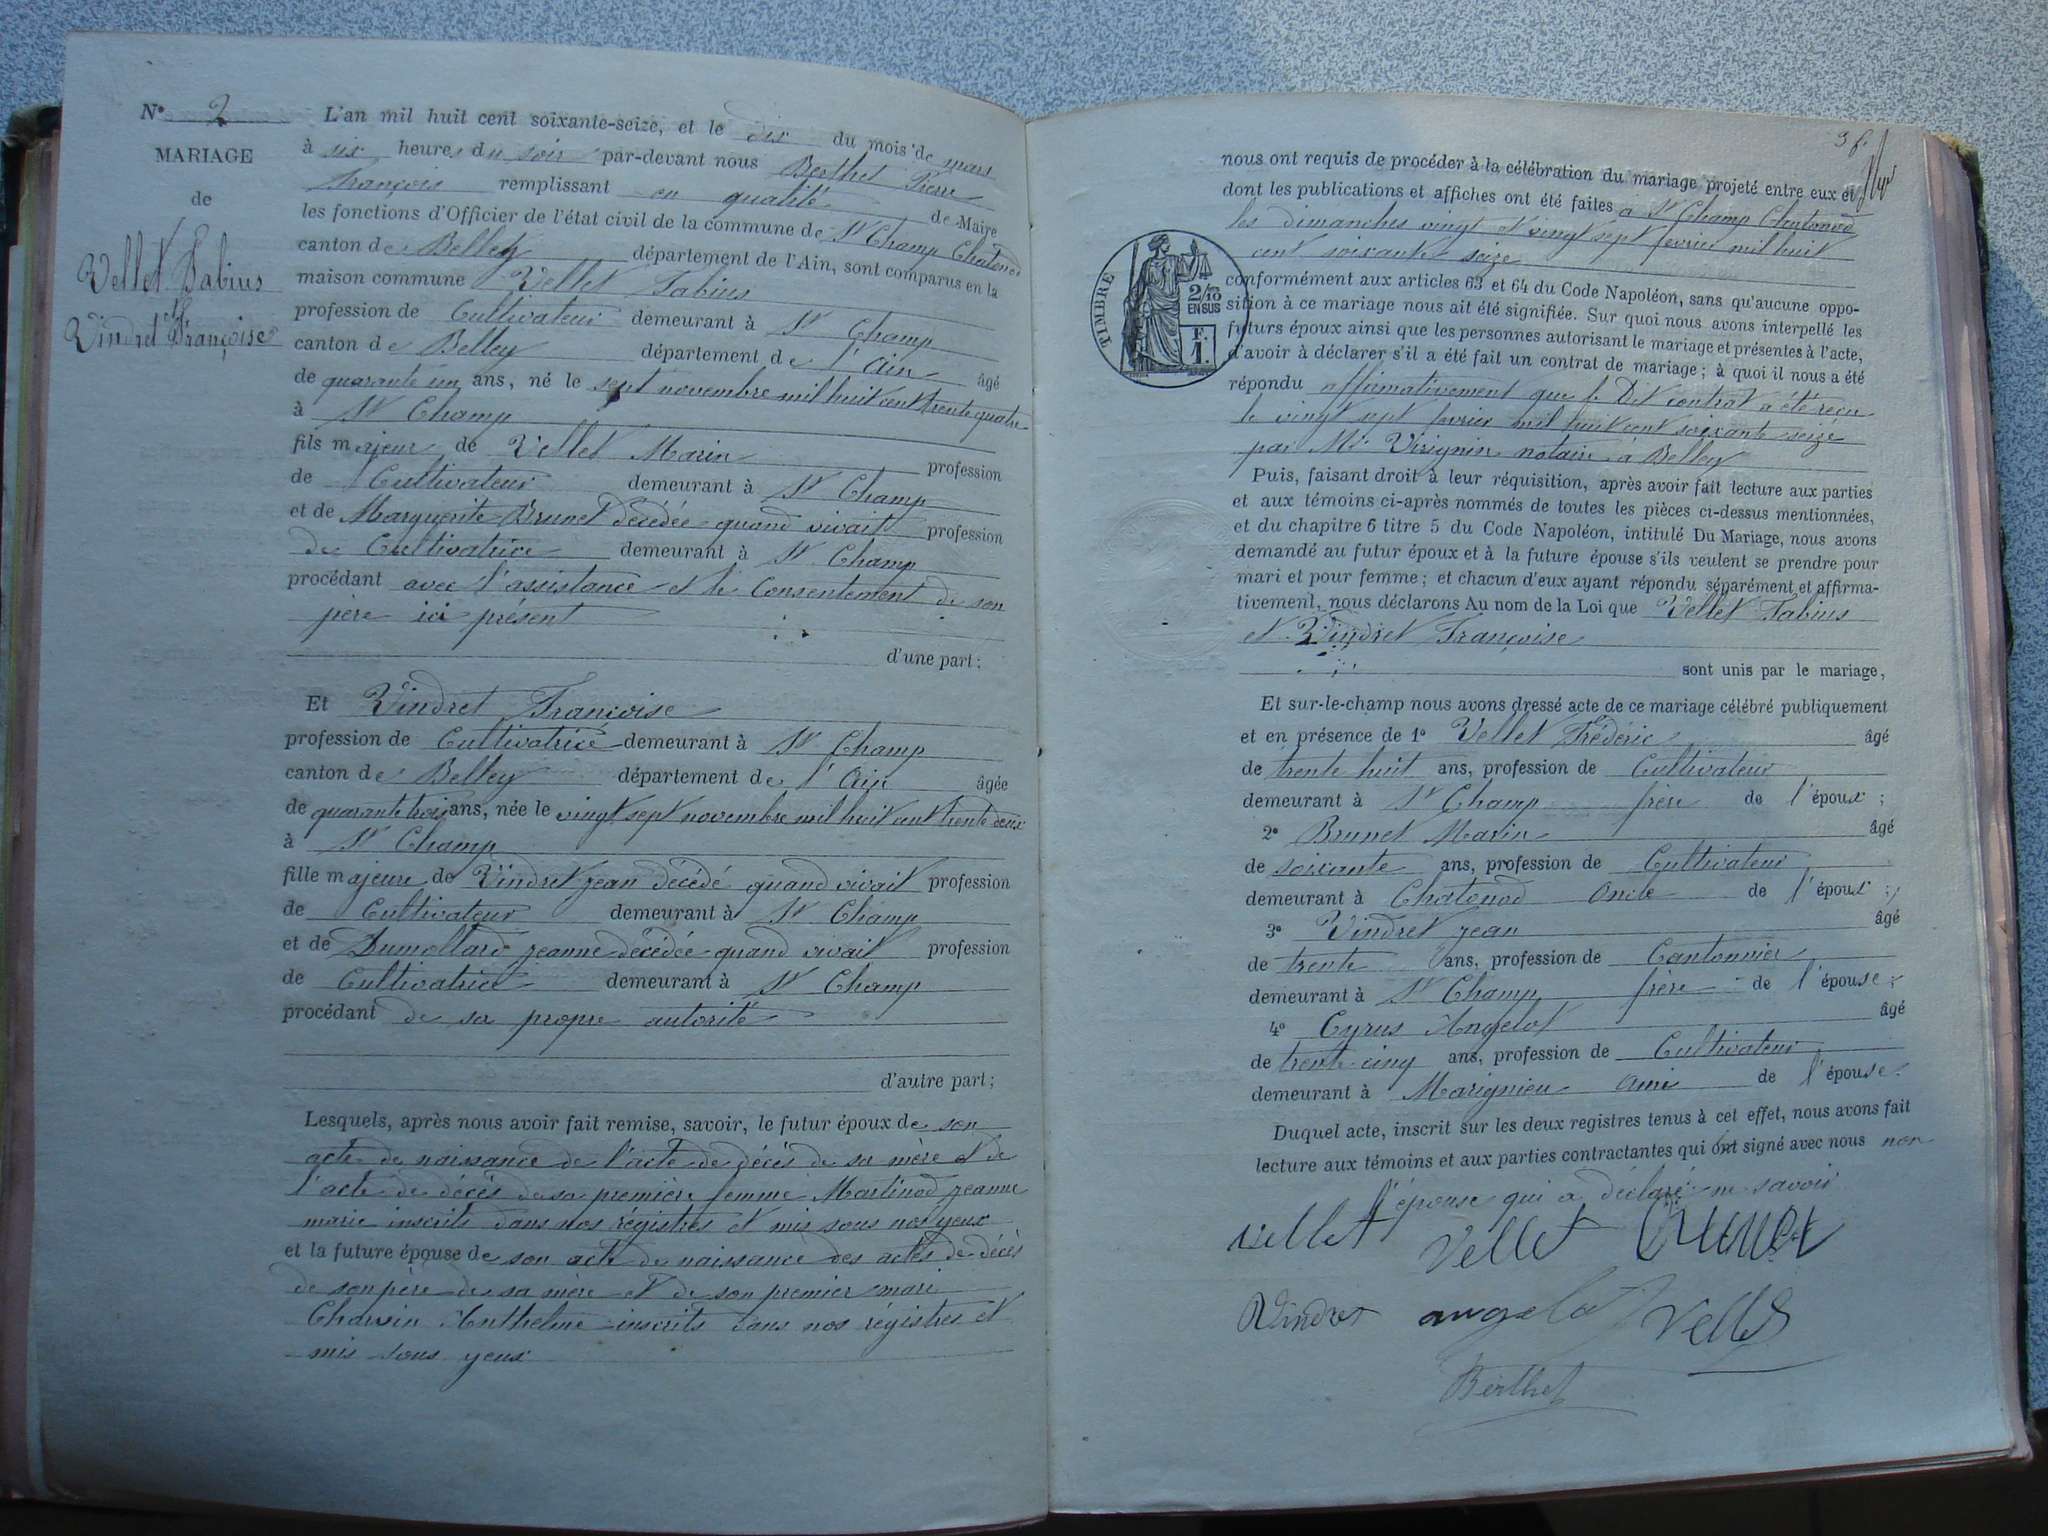 N° 2
MARIAGE
de
Vellet Fabius
et
Vindret Françoise
L'an mil huit cent soixante-seize, et le dix du mois de mars
à six heures du soir par-devant nous Berthet Pierre
François remplissant en qualité de Maire
les fonctions d'Officier de l'état civil de la commune de St Champ Chatonod
canton de Belley département de l'Ain, sont comparus en la
maison commune Vellet Fabius
profession de Cultivateur demeurant à St Champ
canton de Belley département de l'Ain âgé
de quarante un ans, né le sept novembre mil huit cent trente quatre
à St Champ
fils majeur de Vellet Marin profession
de Cultivateur demeurant à St Champ
et de Marguerite Brunet décédée quand vivait profession
de Cultivatrice demeurant à St Champ
procédant avec l'assistance et le Consentement de son
père ici présent
d'une part;
Et Vindret Françoise
profession de Cultivatrice demeurant à St Champ
canton de Belley département de l'Ain âgée
de quarante trois ans, née le vingt sept novembre mil huit cent trente deux
à St Champ
fille majeure de Vindret jean décédé quand vivait profession
de Cultivateur demeurant à St Champ
et de Dumollard jeanne décédée quand vivait profession
de Cultivatrice demeurant à St Champ
procédant de sa propre autorité
d'autre part;
Lesquels, après nous avoir fait remise, savoir, le futur époux de son
acte de naissance de l'acte de décès de sa mère et de
l'acte de décès de sa première femme Martinod jeanne
marie inscrits dans nos régistres et mis sous nos yeux
et la future épouse de son acte de naissance des actes de décès
de son père de sa mère et de son premier mari
Charvin Anthelme inscrits dans nos régistres et
mis sous yeux
3 f.
nous ont requis de procéder à la célébration du mariage projeté entre eux et
dont les publications et affiches ont été faites à St Champ Chatonod
les dimanches vingt et vingt sept fevrier mil huit
cent soixante seize
TIMBRE
2/10
EN SUS
F.
1.
conformément aux articles 63 et 64 du Code Napoléon, sans qu'aucune oppo-
sition à ce mariage nous ait été signifiée. Sur quoi nous avons interpellé les
futurs époux ainsi que les personnes autorisant le mariage et présentes à l'acte,
d'avoir à déclarer s'il a été fait un contrat de mariage; à quoi il nous a été
répondu affirmativement que le Dit contrat a été reçu
le vingt sept fevrier mil huit cent soixante seize
par Me Visignin notaire à Belley
Puis, faisant droit à leur réquisition, après avoir fait lecture aux parties
et aux témoins ci-après nommés de toutes les pièces ci-dessus mentionnées,
et du chapitre 6 titre 5 du Code Napoléon, intitulé Du Mariage, nous avons
demandé au futur époux et à la future épouse s'ils veulent se prendre pour
mari et pour femme; et chacun d'eux ayant répondu séparément et affirma-
tivement, nous déclarons Au nom de la Loi que Vellet Fabius
et Vindret Françoise
sont unis par le mariage,
Et sur-le-champ nous avons dressé acte de ce mariage célébré publiquement
et en présence de 1° Vellet Frédéric âgé
de trente huit ans, profession de Cultivateur
demeurant à St Champ frère de l'époux;
2° Brunet Marin âgé
de soixante ans, profession de Cultivateur
demeurant à Chatonod Oncle de l'époux;
3° Vindret jean âgé
de trente ans, profession de Cantonnier
demeurant à St Champ frère de l'épouse;
4° Cyrus Angelot âgé
de trente cinq ans, profession de Cultivateur
demeurant à Marignieu Ami de l'épouse.
Duquel acte, inscrit sur les deux registres tenus à cet effet, nous avons fait
lecture aux témoins et aux parties contractantes qui ont signé avec nous non
l'épouse qui a déclaré ne savoir
Vellet Vellet Brunet
Vindret angelot Vellet
Berthet